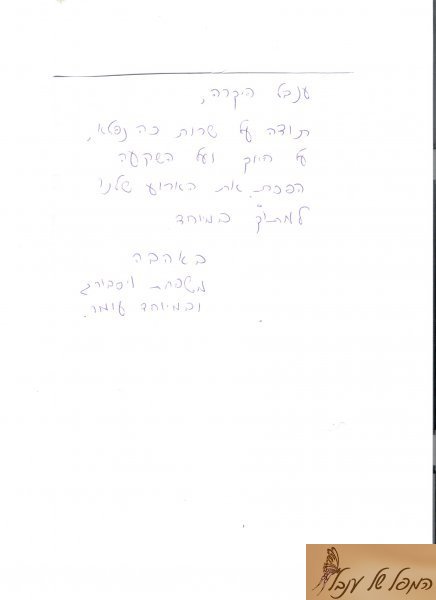 ענבל היקרה,
תודה על שרות כה נפלא,
על חיוך ועל השקעה
הפכת את הארוע שלנו
למתוק במיוחד
באהבה
משפחת ויסבורג
ובמיוחד עומר.
הפסל של ענבל